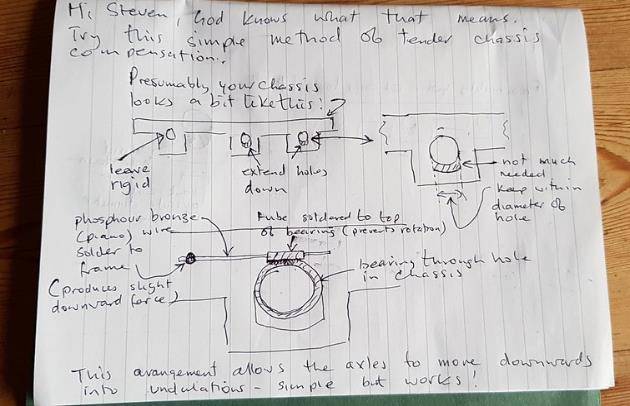 Hi Steven, God knows what that means.
Try this simple method of tender chassis
compensation..
Presumably your chassis
looks a bit like this:
leave
rigid
extend holes
down
not much
needed
keep within
diameter of
hole
phosphour bronze
(piano) wire
solder to
frame
(produces slight
downward force)
tube soldered to top
of bearing (prevents rotation)
bearing through hole
in chassis
This arangement allows the axles to move downwards
into undulations - simple but works!